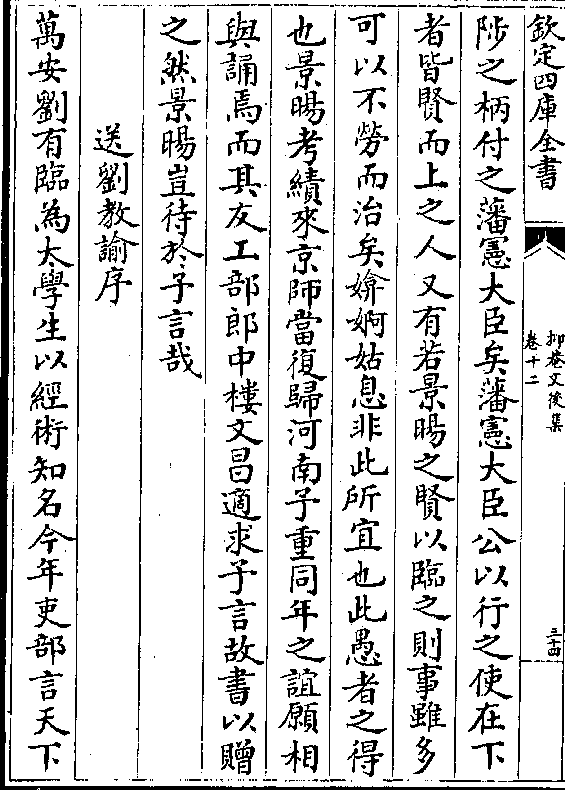 欽定四庫全書
抑菴文後集
卷十二
三十四
陟之柄付之藩憲大臣矣藩憲大臣公以行之使在下
者皆賢而上之人又有若景暘之賢以臨之則事雖多
可以不勞而治矣媕婀姑息非此所宜也此愚者之得
也景暘考績來京師當復歸河南予重同年之誼願相
與誦焉而其友工部郎中樓文昌適求予言故書以贈
之然景暘豈待於予言哉
送劉教諭序
萬安劉有臨為太學生以經術知名今年吏部言天下